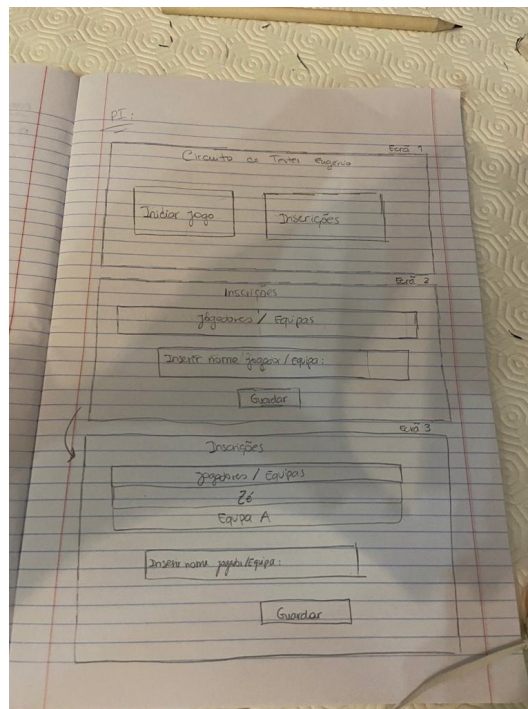 PI:
Ecrã 1
Circuito de Testes Eugénio
Iniciar jogo
Inscrições
Ecrã 2
Inscrições
Jogadores / Equipas
Inserir nome jogador/equipa:
Guardar
Ecrã 3
Inscrições
Jogadores / Equipas
Zé
Equipa A
Inserir nome jogador/Equipa:
Guardar